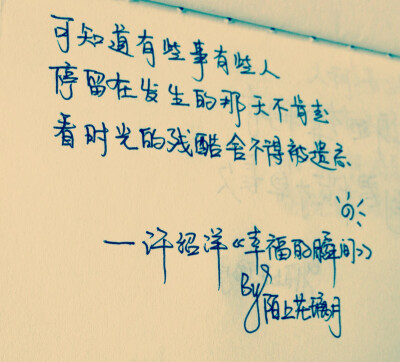 可知道有些事有些人
停留在发生的那天不肯走
看时光的残酷舍不得被遗忘
—许绍洋《幸福的瞬间》
By 陌上